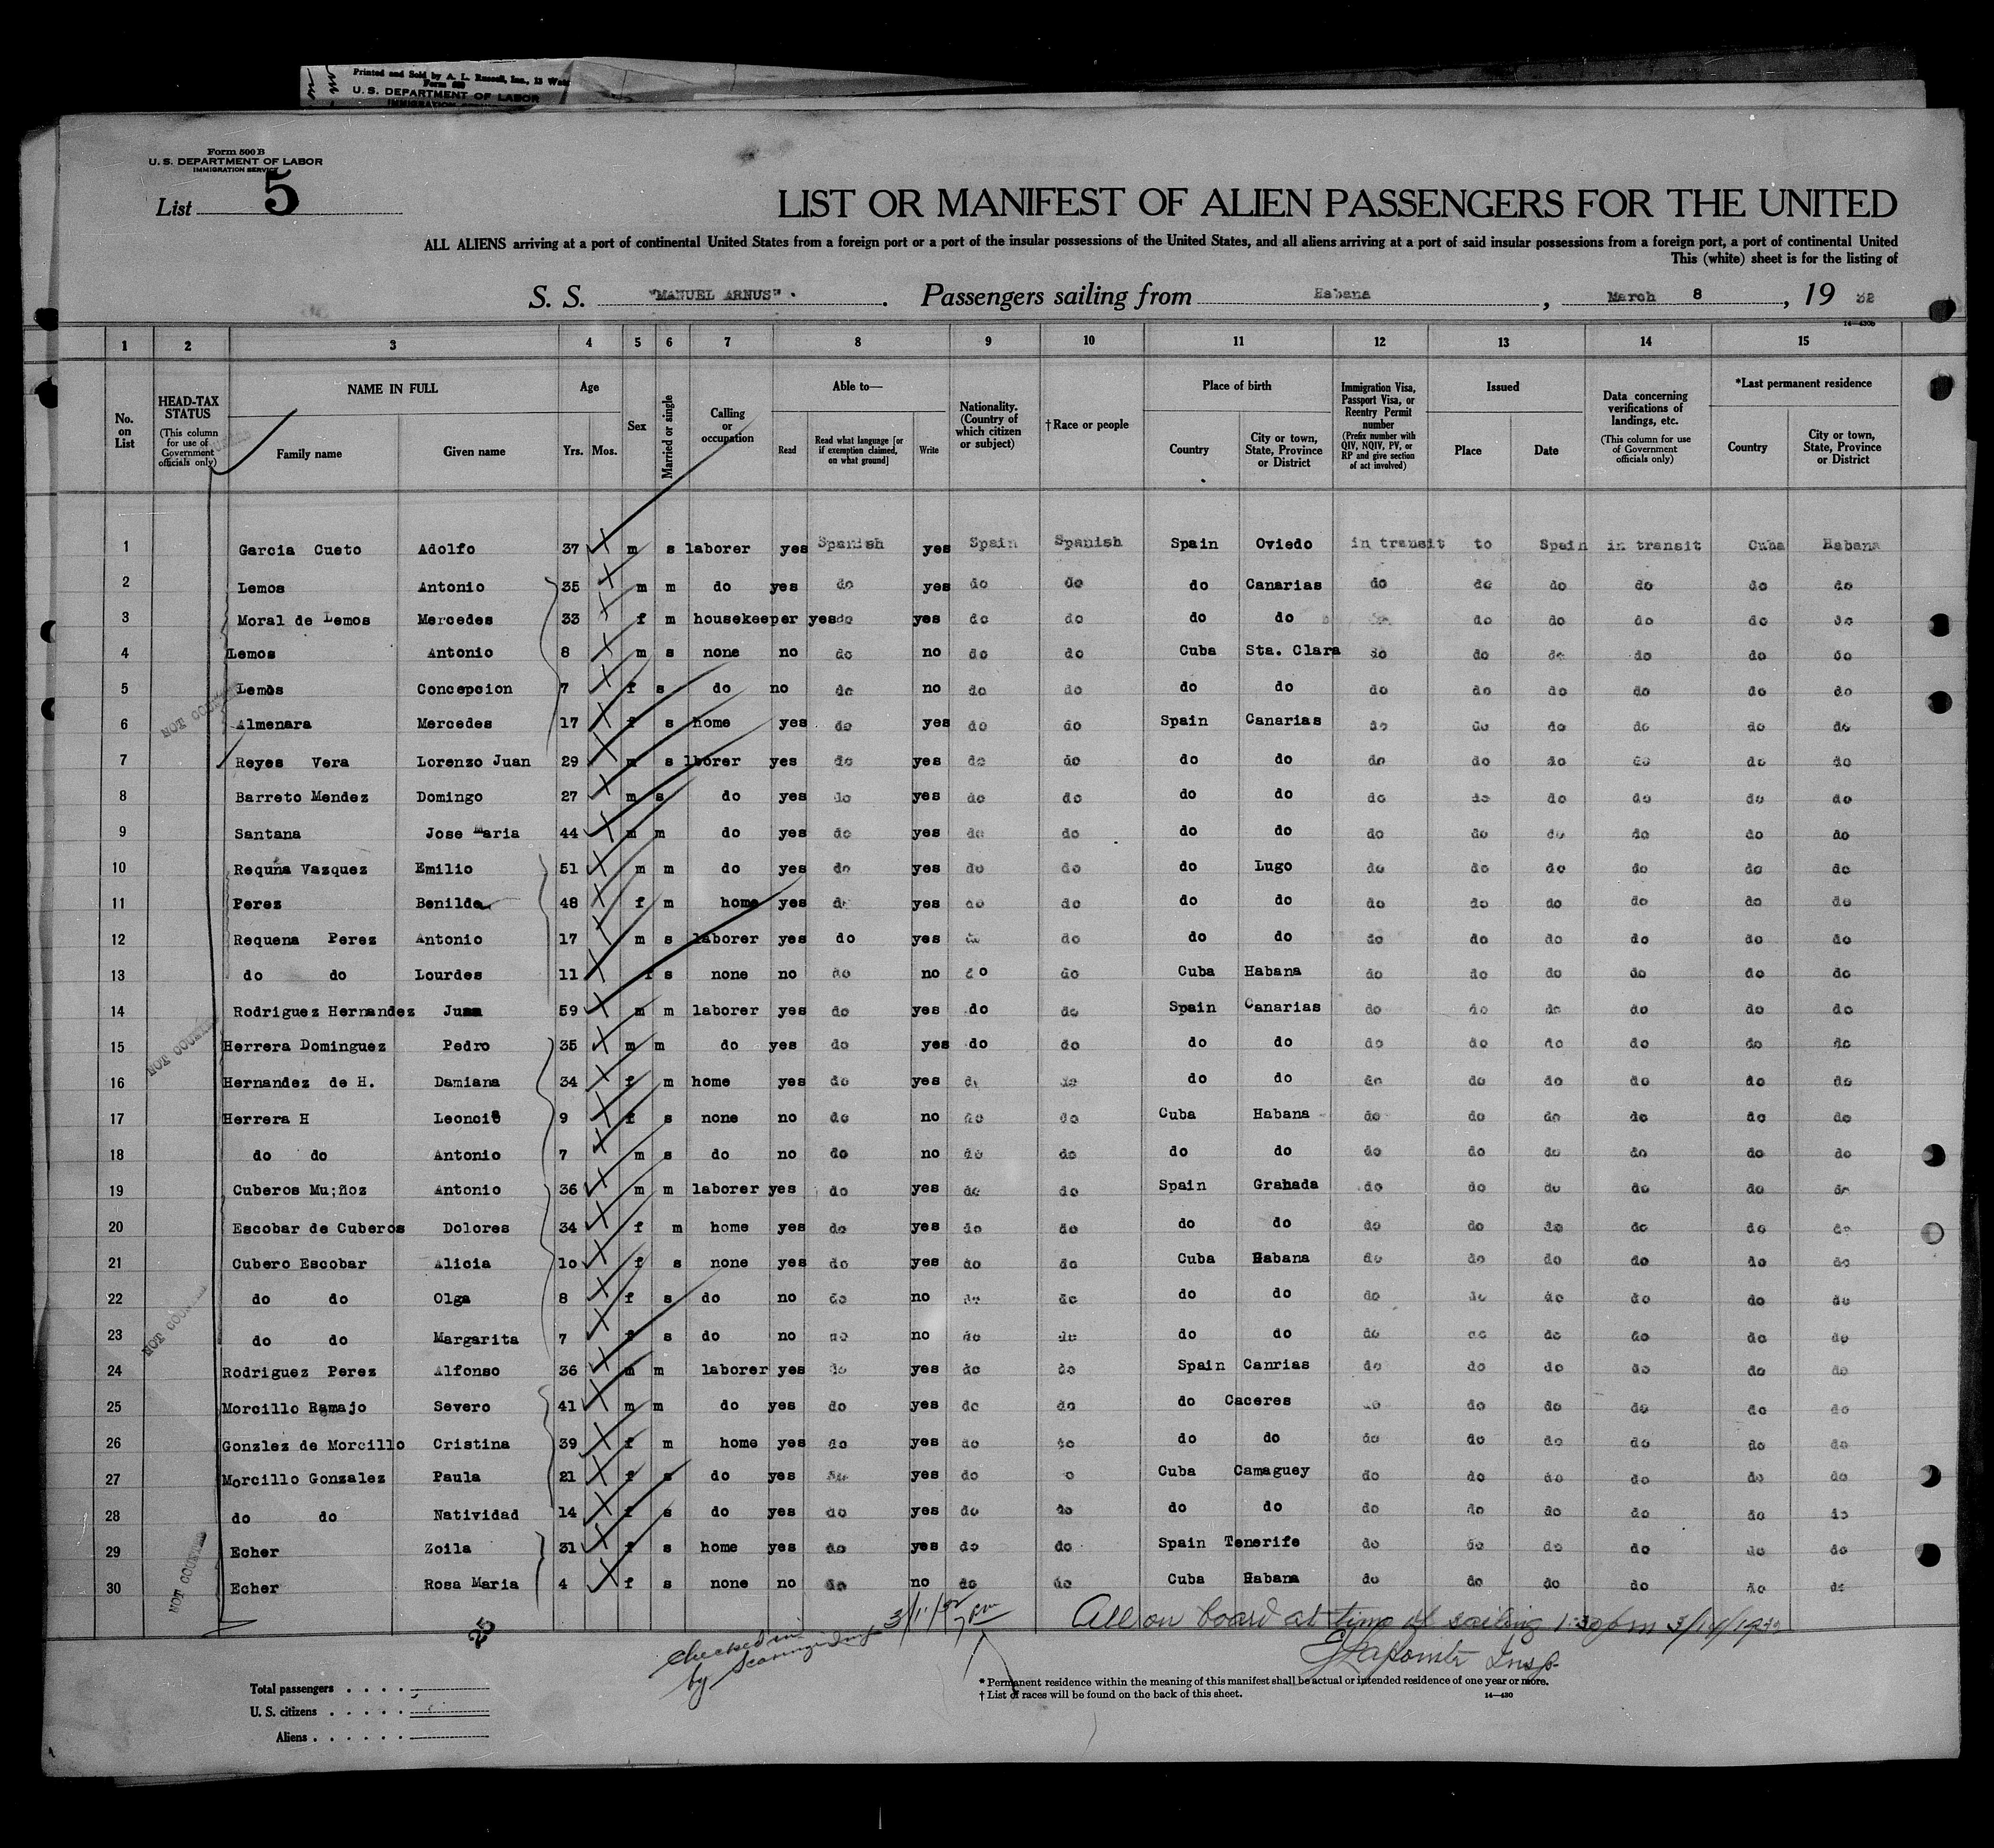 Printed and Sold by A. L. Russell, Inc., 13 Wat
Form 500
U. S. DEPARTMENT OF LABOR
IMMIGRATION
Form 500 B
U. S. DEPARTMENT OF LABOR
IMMIGRATION SERVICE
List 5
LIST OR MANIFEST OF ALIEN PASSENGERS FOR THE UNITED
ALL ALIENS arriving at a port of continental United States from a foreign port or a port of the insular possessions of the United States, and all aliens arriving at a port of said insular possessions from a foreign port, a port of continental United
This (white) sheet is for the listing of
S. S. "MANUEL ARNUS" . Passengers sailing from Habana , March 8 , 19 32
14—430b
1 2 3 4 5 6 7 8 9 10 11 12 13 14 15
No. on List
HEAD-TAX STATUS (This column for use of Government officials only)
NAME IN FULL Family name Given name
Age Yrs. Mos.
Sex
Married or single
Calling or occupation
Able to— Read Read what language [or if exemption claimed, on what ground] Write
Nationality. (Country of which citizen or subject)
†Race or people
Place of birth Country City or town, State, Province or District
Immigration Visa, Passport Visa, or Reentry Permit number (Prefix number with QIV, NQIV, PV, or RP and give section of act involved)
Issued Place Date
Data concerning verifications of landings, etc. (This column for use of Government officials only)
*Last permanent residence Country City or town, State, Province or District
1 Garcia Cueto Adolfo 37 m s laborer yes Spanish yes Spain Spanish Spain Oviedo in transit to Spain in transit Cuba Habana
2 Lemos Antonio 35 m m do yes do yes do do do Canarias do do do do do do
3 Moral de Lemos Mercedes 33 f m housekeeper yes do yes do do do do do do do do do
4 Lemos Antonio 8 m s none no do no do do Cuba Sta. Clara do do do do do do
5 Lemos Concepcion 7 f s do no do no do do do do do do do do do do
6 Almenara Mercedes 17 f s home yes do yes do do Spain Canarias do do do do do do
7 Reyes Vera Lorenzo Juan 29 m s lborer yes do yes do do do do do do do do do do
8 Barreto Mendez Domingo 27 m s do yes do yes do do do do do do do do do do
9 Santana Jose Maria 44 m m do yes do yes do do do do do do do do do do
10 Requna Vazquez Emilio 51 m m do yes do yes do do do Lugo do do do do do do
11 Perez Benilde 48 f m home yes do yes do do do do do do do do do do
12 Requena Perez Antonio 17 m s laborer yes do yes do do do do do do do do do do
13 do do Lourdes 11 f s none no do no do do Cuba Habana do do do do do do
14 Rodriguez Hernandez Juan 59 m m laborer yes do yes do do Spain Canarias do do do do do do
15 Herrera Dominguez Pedro 35 m m do yes do yes do do do do do do do do do do
16 Hernandez de H. Damiana 34 f m home yes do yes do do do do do do do do do do
17 Herrera H Leoncia 9 f s none no do no do do Cuba Habana do do do do do do
18 do do Antonio 7 m s do no do no do do do do do do do do do do
19 Cuberos Mu;ñoz Antonio 36 m m laborer yes do yes do do Spain Grahada do do do do do do
20 Escobar de Cuberos Dolores 34 f m home yes do yes do do do do do do do do do do
21 Cubero Escobar Alicia 10 f s none yes do yes do do Cuba Habana do do do do do do
22 do do Olga 8 f s do no do no do do do do do do do do do do
23 do do Margarita 7 f s do no do no do do do do do do do do do do
24 Rodriguez Perez Alfonso 36 m m laborer yes do yes do do Spain Canrias do do do do do do
25 Morcillo Ramajo Severo 41 m m do yes do yes do do do Caceres do do do do do do
26 Gonzlez de Morcillo Cristina 39 f m home yes do yes do do do do do do do do do do
27 Morcillo Gonzalez Paula 21 f s do yes do yes do o Cuba Camaguey do do do do do do
28 do do Natividad 14 f s do yes do yes do do do do do do do do do do
29 Echer Zoila 31 f s home yes do yes do do Spain Tenerife do do do do do do
30 Echer Rosa Maria 4 f s none no do no do do Cuba Habana do do do do do do
NOT COUNTED
NOT COUNTED
NOT COUNTED
NOT COUNTED
25
Checked in
by 3/11/32 7 pm
All on board at time of sailing 1:30 pm 3/14/1932
Insp.
Total passengers . . . .
U. S. citizens . . . . .
Aliens . . . . . .
* Permanent residence within the meaning of this manifest shall be actual or intended residence of one year or more.
† List of races will be found on the back of this sheet.
14—430